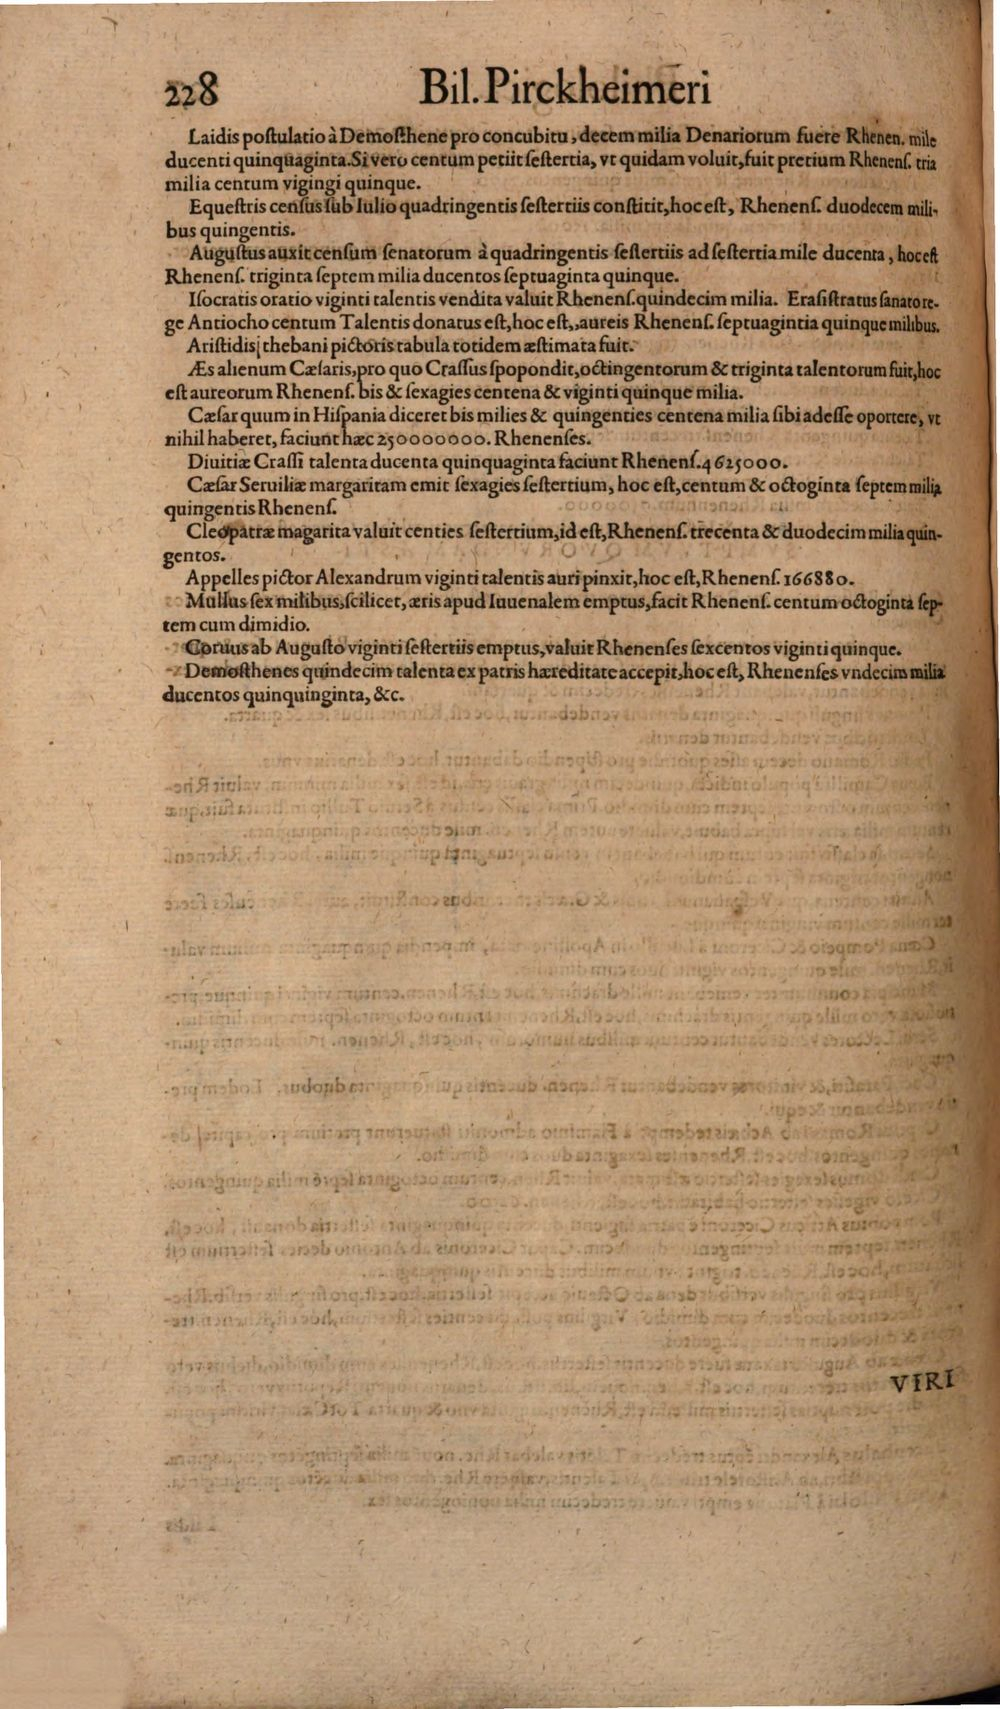 228 Bil. Pirckheimeri
Laidis postulatio à Demosthene pro concubitu, decem milia Denariorum fuere Rhenen. mile
ducenti quinquaginta. Si vero centum petiit sestertia, vt quidam voluit, fuit pretium Rhenens. tria
milia centum vigingi quinque.
Equestris census sub Iulio quadringentis sestertiis constitit, hoc est, Rhenens. duodecem mili-
bus quingentis.
Augustus auxit censum senatorum à quadringentis sestertiis ad sestertia mile ducenta, hoc est
Rhenens. triginta septem milia ducentos septuaginta quinque.
Isocratis oratio viginti talentis vendita valuit Rhenens. quindecim milia. Erasistratus sanato re-
ge Antiocho centum Talentis donatus est, hoc est,, aureis Rhenens. septuagintia quinque milibus.
Aristidis thebani pictoris tabula totidem æstimata fuit.
Æs alienum Cæsaris, pro quo Crassus spopondit, octingentorum & triginta talentorum fuit, hoc
est aureorum Rhenens. bis & sexagies centena & viginti quinque milia.
Cæsar quum in Hispania diceret bis milies & quingenties centena milia sibi adesse oportere, vt
nihil haberet, faciunt hæc 250000000. Rhenenses.
Diuitiæ Crassi talenta ducenta quinquaginta faciunt Rhenens. 4625000.
Cæsar Seruiliæ margaritam emit sexagies sestertium, hoc est, centum & octoginta septem milia
quingentis Rhenens.
Cleopatræ magarita valuit centies sestertium, id est, Rhenens. trecenta & duodecim milia quin-
gentos.
Appelles pictor Alexandrum viginti talentis auri pinxit, hoc est, Rhenens. 166880.
Mullus sex milibus, scilicet, æris apud Iuuenalem emptus, facit Rhenens. centum octoginta sep-
tem cum dimidio.
Coruus ab Augusto viginti sestertiis emptus, valuit Rhenenses sexcentos viginti quinque.
Demosthenes quindecim talenta ex patris hæreditate accepit, hoc est, Rhenenses vndecim milia
ducentos quinquinginta, &c.
VIRI